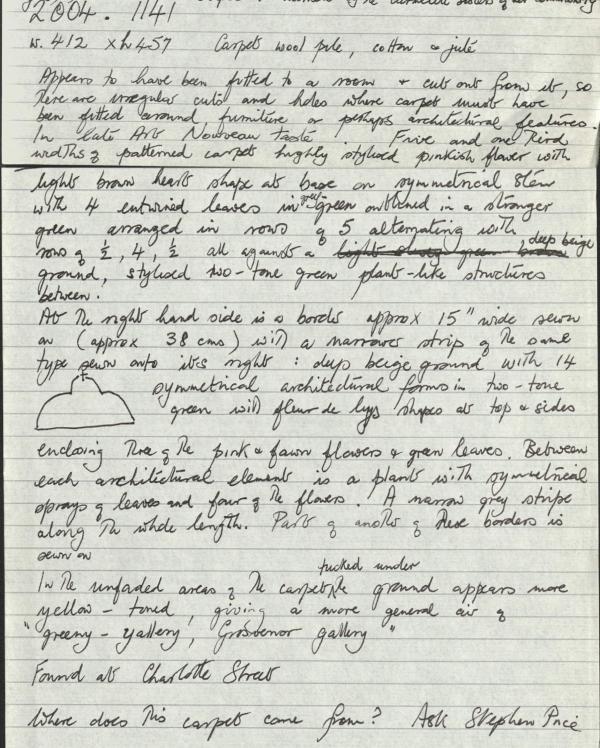 Carmelite sisters & her community
2004. 1141
w. 412 x h 457 Carpet wool pile, cotton & jute
Appears to have been fitted to a room & cut out from it, so
there are irregular cuts and holes where carpet must have
been fitted around, furniture or perhaps architectural features.
In late Art Nouveau taste. Five and one third
widths of patterned carpet highly stylised pinkish flower with
light brown heart shape at base on symmetrical stem
with 4 entwined leaves in green outlined in a stronger
green arranged in rows of 5 alternating with
rows of ½, 4, ½ all against a deep beige
ground, stylised two-tone green plant-like structures
between.
At the right hand side is a border approx 15" wide sewn
on (approx 38 cms) with a narrower strip of the same
type sewn onto its right : deep beige ground with 14
symmetrical architectural forms in two-tone
green with fleur de lys shapes at top & sides
enclosing three of the pink & fawn flowers & green leaves. Between
each architectural element is a plant with symmetrical
sprays of leaves and four of the flowers. A narrow grey stripe
along the whole length. Part of another of these borders is
sewn on
In the unfaded areas of the carpet, tucked under the ground appears more
yellow-toned, giving a more general air of
"greeny-yallery, Grosvenor gallery"
Found at Charlotte Street
Where does this carpet come from? Ask Stephen Price